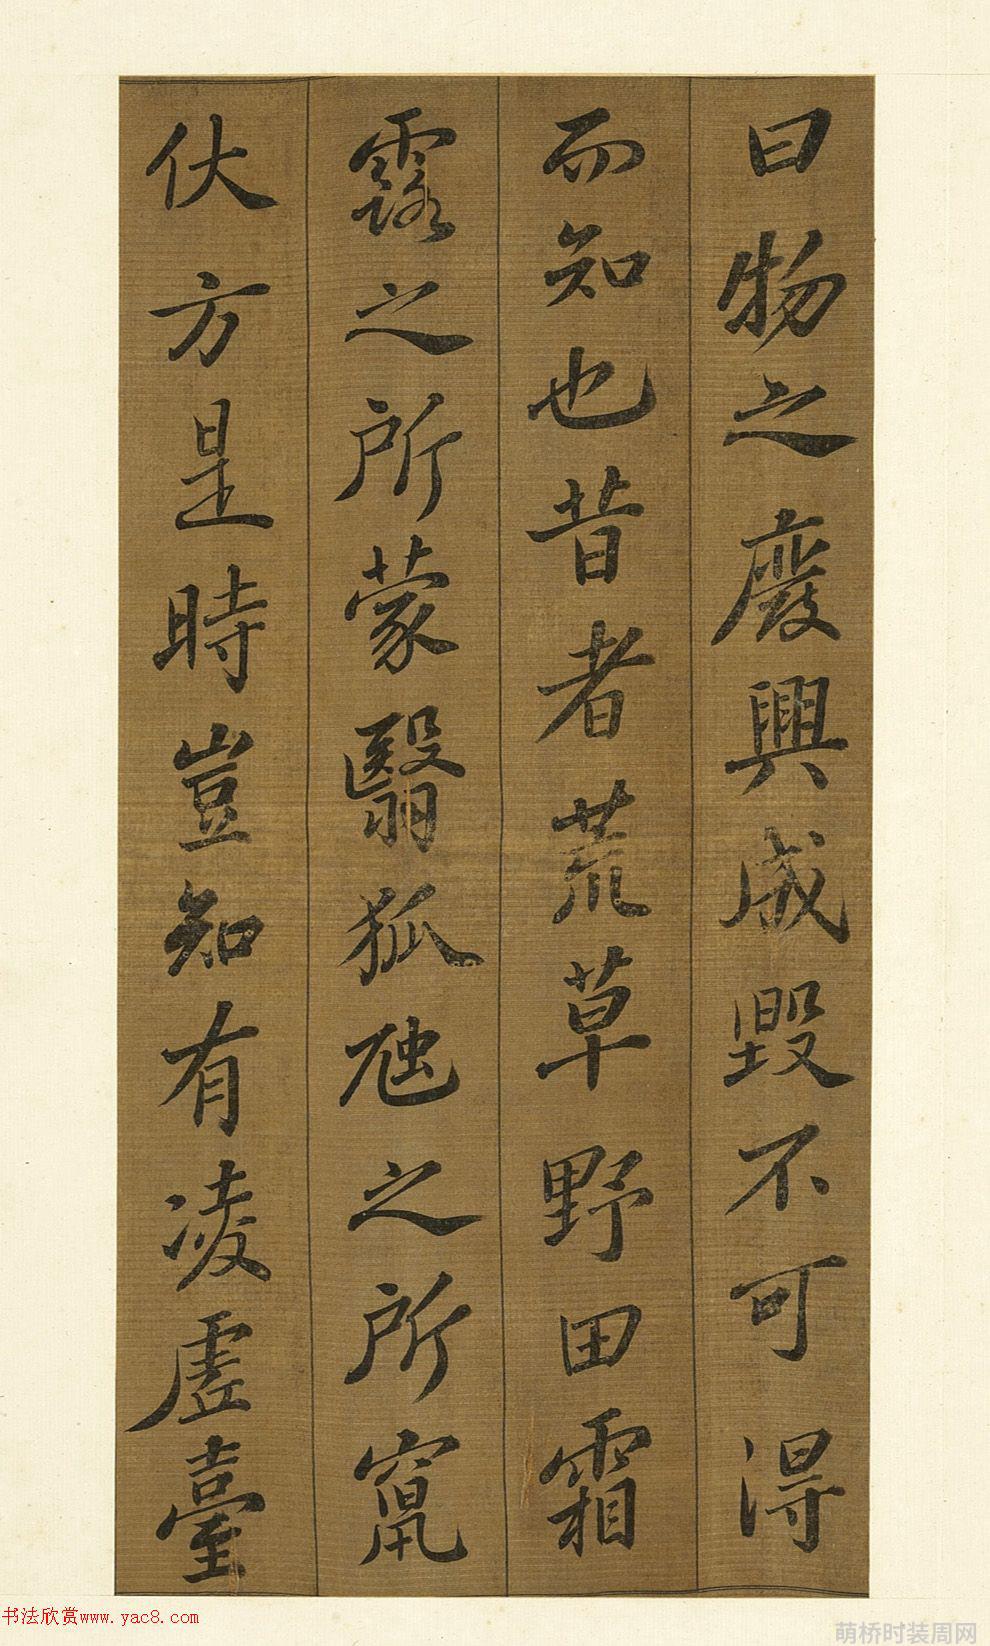 曰物之廢興成毀不可得
而知也昔者荒草野田霜
露之所蒙翳狐虺之所竄
伏方是時豈知有凌虛臺
书法欣赏www.yac8.com
萌桥时装周网